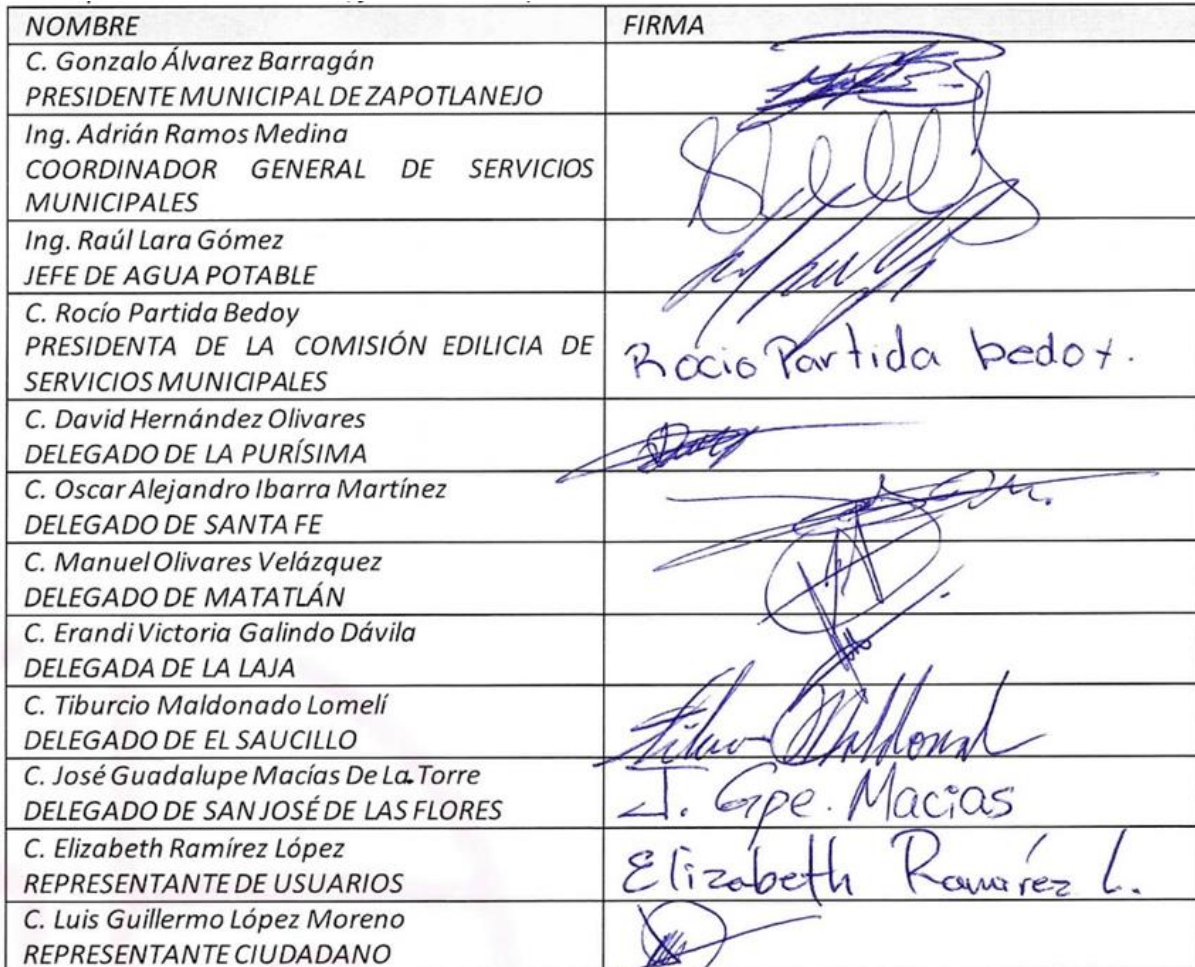 NOMBRE FIRMA
C. Gonzalo Álvarez Barragán
PRESIDENTE MUNICIPAL DE ZAPOTLANEJO
Ing. Adrián Ramos Medina
COORDINADOR GENERAL DE SERVICIOS
MUNICIPALES
Ing. Raúl Lara Gómez
JEFE DE AGUA POTABLE
C. Rocío Partida Bedoy
PRESIDENTA DE LA COMISIÓN EDILICIA DE
SERVICIOS MUNICIPALES
Rocio Partida bedoy.
C. David Hernández Olivares
DELEGADO DE LA PURÍSIMA
C. Oscar Alejandro Ibarra Martínez
DELEGADO DE SANTA FE
C. Manuel Olivares Velázquez
DELEGADO DE MATATLÁN
C. Erandi Victoria Galindo Dávila
DELEGADA DE LA LAJA
C. Tiburcio Maldonado Lomelí
DELEGADO DE EL SAUCILLO
C. José Guadalupe Macías De La Torre
DELEGADO DE SAN JOSÉ DE LAS FLORES
J. Gpe. Macias
C. Elizabeth Ramírez López
REPRESENTANTE DE USUARIOS
Elizabeth Ramírez L.
C. Luis Guillermo López Moreno
REPRESENTANTE CIUDADANO